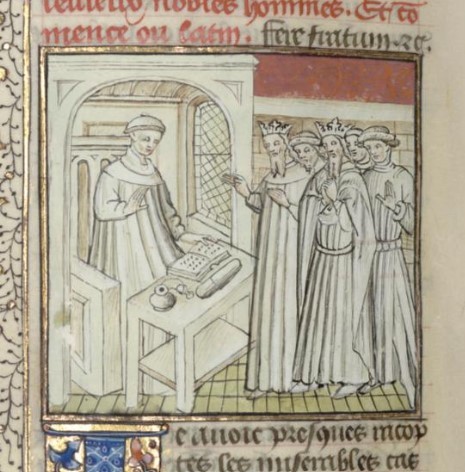 nobles hommes. Et cō
mence ou latin. fere finitum ⁊c.
e auoie presques
tes les miserables cas